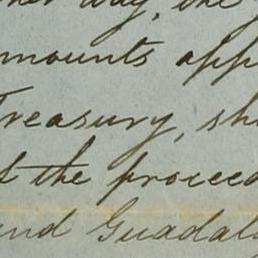 way, the
mounts app
Treasury, sh
the proceed
and Guadal